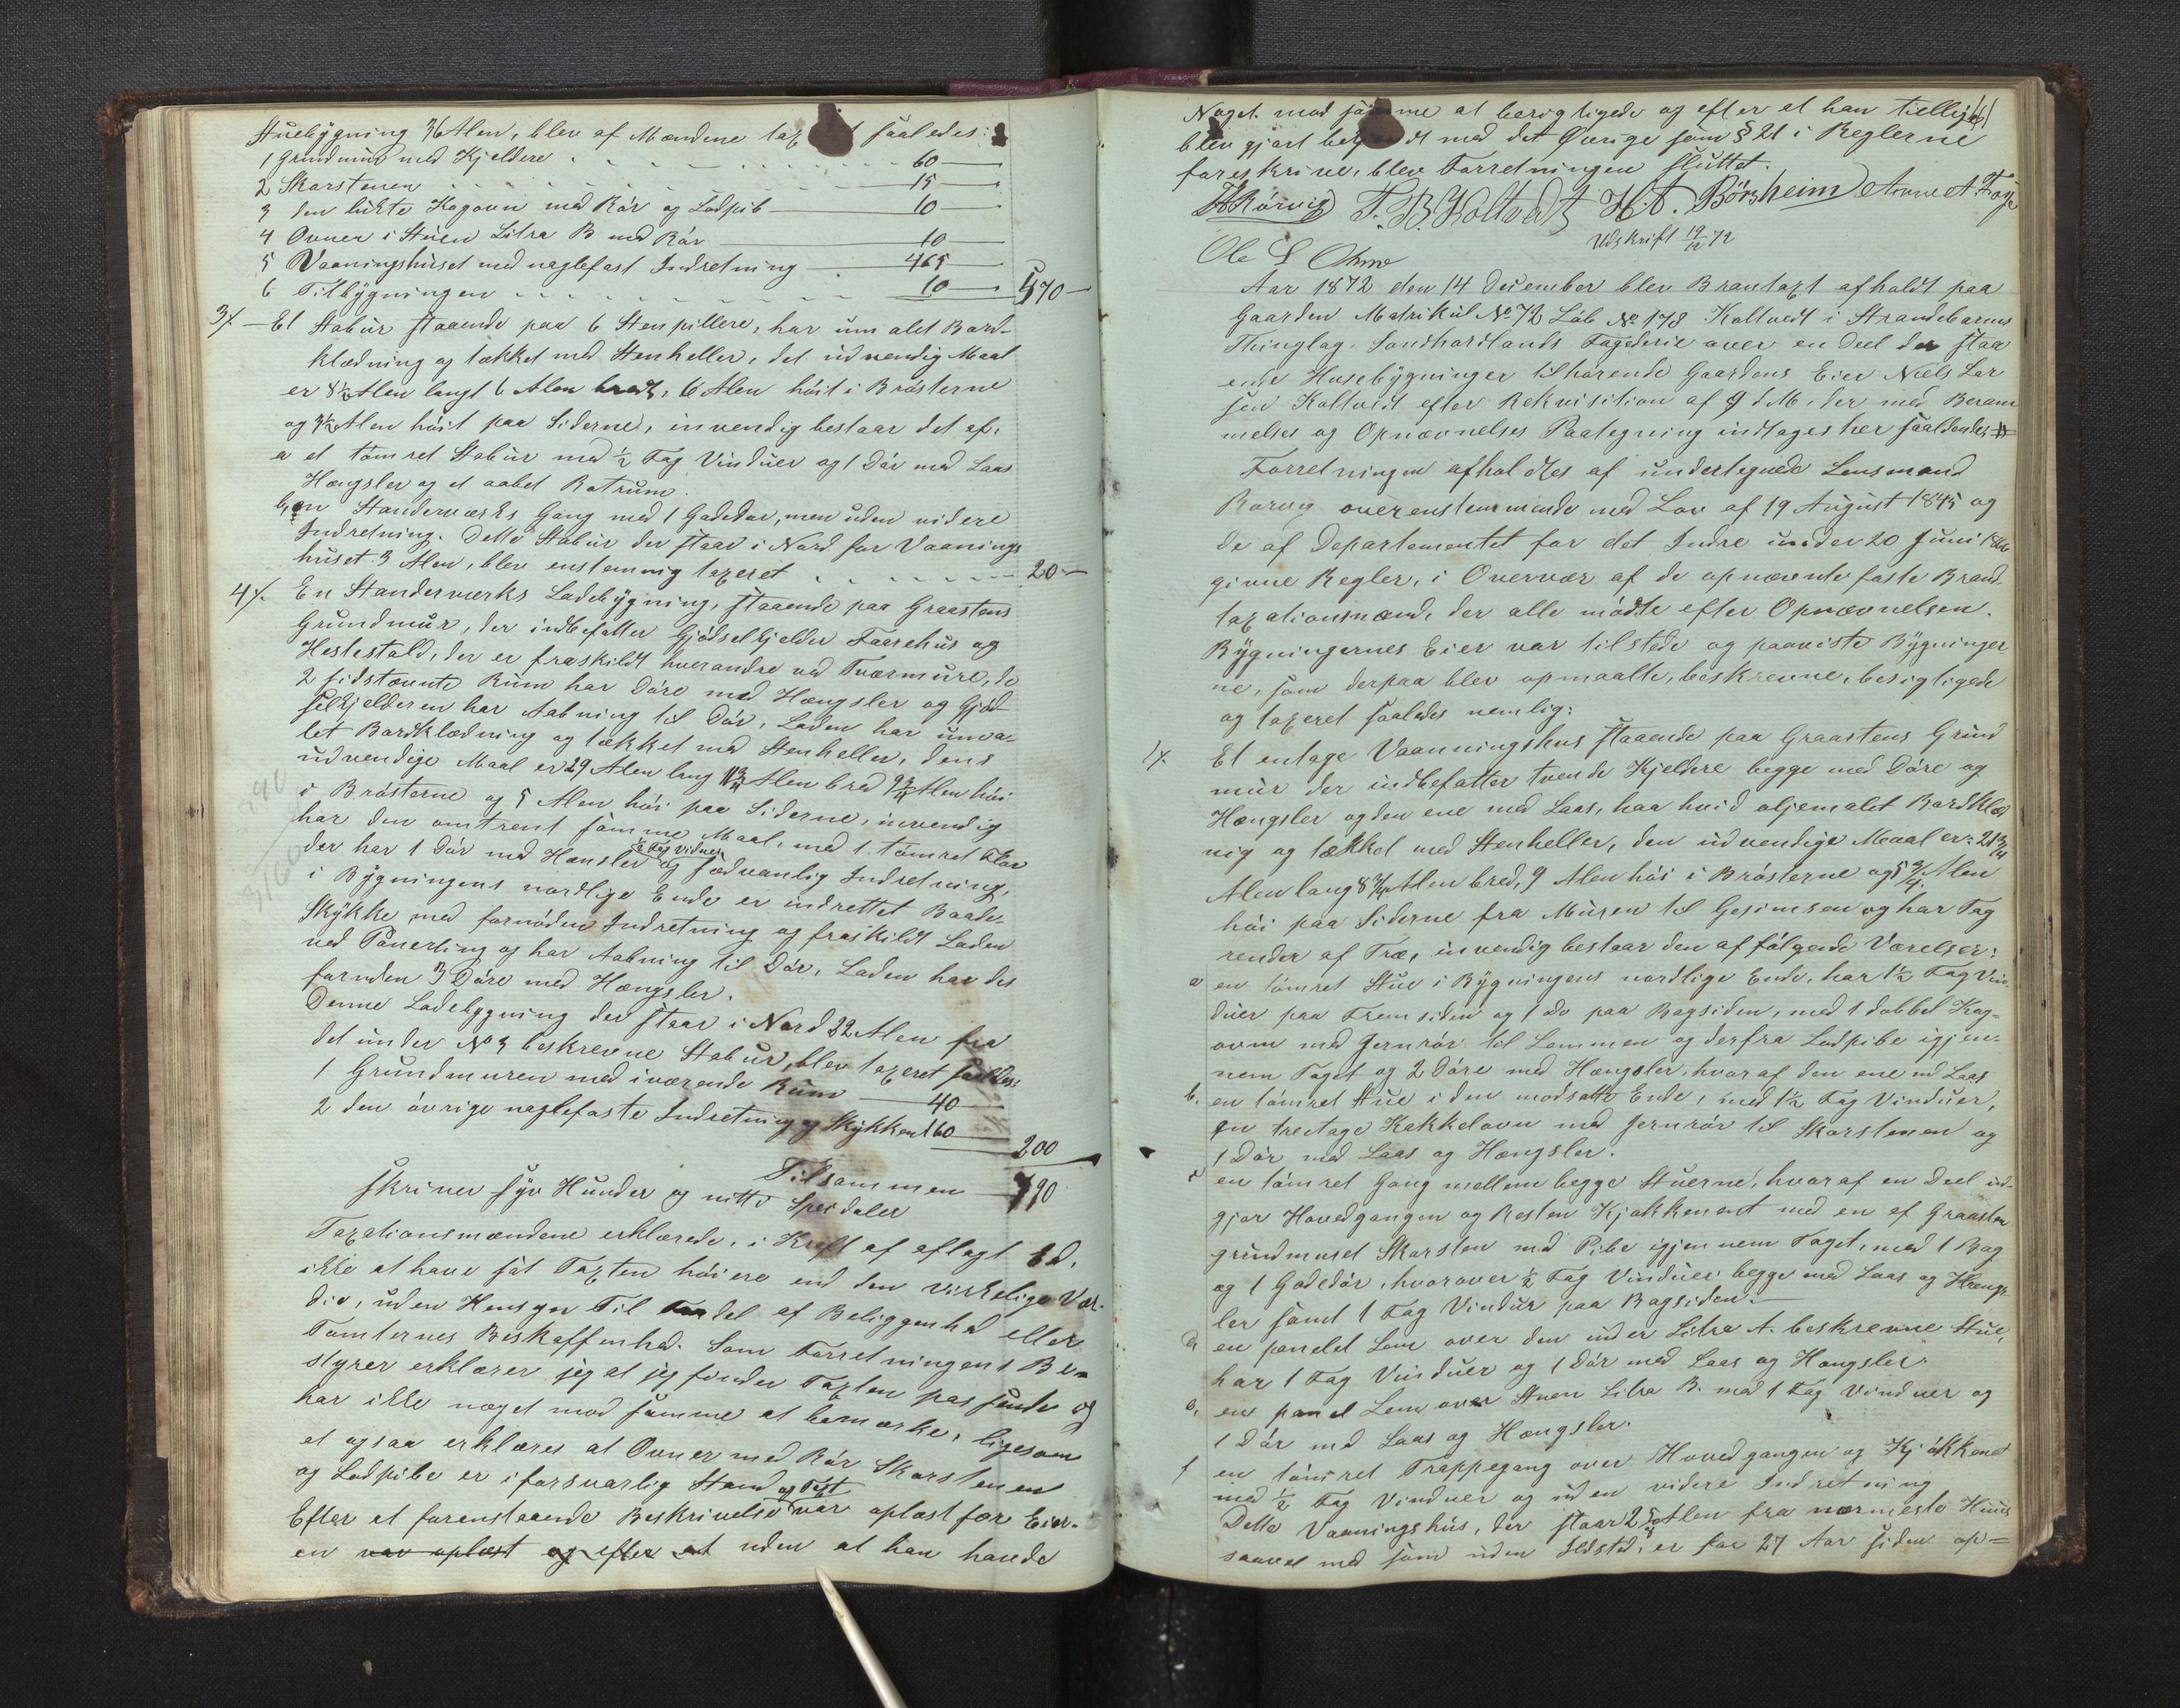 Huebygning 36 Alen, blev af Mændene tax t saaledes:
1 Grundmur med Kjeldere 60
2 Skorstenen 15
3 den lukte Kogovn med Rör og Ladpib 10
4 Ovner i Stuen Litra B med Rör 10
5 Vaaningshuset med naglefast Indretning 465
6 Tilbygningen 10 570
3/. Et Stabur staaende paa 6 Stenpillere, har um alet Bord-
klædning og tækket med Stenheller, det udvendig Maal
er 8½ Alen langt 6 Alen bredt, 6 Alen höit i Brösterne
og 3½ Alen höit paa Siderne, invendig bestaar det af:
a et tömret Stabur med ½ Fag Vinduer og 1 Dör med Laas
Hængsler og et aabet Rotrum.
b, en Standerværks Gang med 1 Gadedör, men uden videre
Indretning. Dette Stabur der staar i Nord for Vaanings
huset 3 Alen, blev enstemmig taxeret 20
4/. En Standerværks Ladebygning, staaende paa Graastens
Grundmur, der indbefatter Gjödselkjelder Faarehus og
Hestestald, der er fraskildt hverandre ved Tværmure, de
2 sidstnævnte Rum har Döre med Hængsler og Gjöd-
selkjelderen har Aabning til Dör, Laden har uma-
let Bordklædning og tækket med Stenheller, dens
udvendige Maal er 29 Alen lang 11¾ Alen bred 9¾ Alen höi
i Brösterne og 5 Alen höi paa Siderne, invendig
har den omtrent samme Maal, med 1 tömret Flor
der har 1 Dör med Hænsler 2 Fag Vinduer og sædvanlig Indretning,
i Bygningens nordlige Ende er indrettet Baade-
Skykke med fornöden Indretning og fraskildt Laden
ved Panerling og har Aabning til Dör, Laden har des
foruden 3 Döre med Hængsler.
Denne Ladebygning der staar i Nord 32 Alen fra
det under No 3 beskrevne Stabur, blev taxeret saaledes:
1 Grundmuren med iværende Rum 40
2 den övrige naglefaste Indretning og Skykken 160 200
Tilsammen 790
skriver syv Hunder og nitti Speidaler
Taxationsmændene erklærede, i Kraft af aflagt Ed,
ikke at have sat Taxten höiere end den virkelige Vær-
die, uden Hensyn til Fordel af Beliggenhed eller
Tomternes Beskaffenhed. Som Forretningens Be-
styrer erklærer jeg at jeg finder Taxten passende og
har ikke noget mod samme at bemærke, ligesom
et ogsaa erklæres at Ovner med Rör Skorstenen
og Ladpibe er i forsvarlig Stand
Efter at foranstaaende Beskrivelse og Taxt var oplæst for Eier-
en var oplæst og efter at uden at han havde
Noget mod samme at berigtigede og efter at han tillige
blev gjort bekjendt med det Övrige som § 21 i Reglerne
foreskrive, blev Forretningen sluttet.
Rörvig T. B. Koltvedt H. A. Börsheim Arne A. Tröje
Udskrift 19/12 72
Ole S
Aar 1872 den 14 December blev Brantaxt afholdt paa
Gaarden Matrikul No 72 Löb No 178 Koltvedt i Strandebarms
Thinglag Söndhordlands Fogederie over en Deel der staa
ende Husebygninger tilhörende Gaardens Eier Niels Lar
sen Koltvedt efter Rekvisition af 9 d M. der med Beram
melses og Opnævnelses Paategning indtages her saaledes:
Forretningen afholdtes af undertegnede Lensmand
Rorvig overenstemmende med Lov af 19 August 1845 og
de af Departementet for det Indre under 20 Juni 1846
givne Regler, i Overvær af de opnævnte faste Brand-
taxationsmænd, der alle mödte efter Opnævnelsen.
Bygningernes Eier var tilstede og paaviste Bygninger
ne, som derpaa blev opmaalte, beskrevne, besigtigede
og taxeret saaledes nemlig:
1/. Et entage Vaanningshus staaende paa Graastens Grund
mur der indbefatter tvende Kjeldere begge med Döre og
Hængsler og den ene med Laas, har hvid oljemalet Bordklæd
nig og tækket med Stenheller, den udvendige Maal er: 21¾
Alen lang 8¾ Alen bred, 9 Alen höi i Brösterne og 5¾ Alen
höi paa Siderne fra Muren til Gesimsen og har Tag
render af Træ, invendig bestaar den af fölgende Værelser:
a en tömret Stue i Bygningens nordlige Ende, har 1½ Fag Vin-
duer paa Fremsiden og 1 Do paa Bagsiden, med 1 dobbel Kog-
ovn med Jernrör til Lemmen og derfra Ladpibe igjen-
nem Taget og 2 Döre med Hængsler, hvoraf den ene md Laas
b. en tömret Stue i den modsatte Ende, med 1½ Fag Vinduer,
en treetage Kakkelovn med Jernrör til Skorstenen og
1 Dör med Laas og Hængsler.
c en tömret Gang mellem begge Stuerne, hvoraf en Deel ud-
gjör Hovedgangen og Resten Kjökkenet med en af Graasten
grundmuret Skorsten med Pibe igjennem Taget, med 1 Bag
og 1 Gadedör, hvorover ½ Fag Vinduer begge med Laas og Hængs-
ler samt 1 Fag Vindur paa Bagsiden.
d, en panelet Lem over den under Litra A. beskrevne Stue,
har 1 Fag Vinduer og 1 Dör med Laas og Hængsler.
e, en panel Lem over Stuen Litra B. med 1 Fag Vinduer og
1 Dör med Laas og Hængsler.
f en tömret Trappegang over Hovedgangen og Kjökkenet
med ½ Fag Vinduer og uden videre Indretning
Dette Vaaningshus, der staar 25 Alen fra nærmeste Huus
saavel med som uden Ildsted, er for 27 Aar siden op=